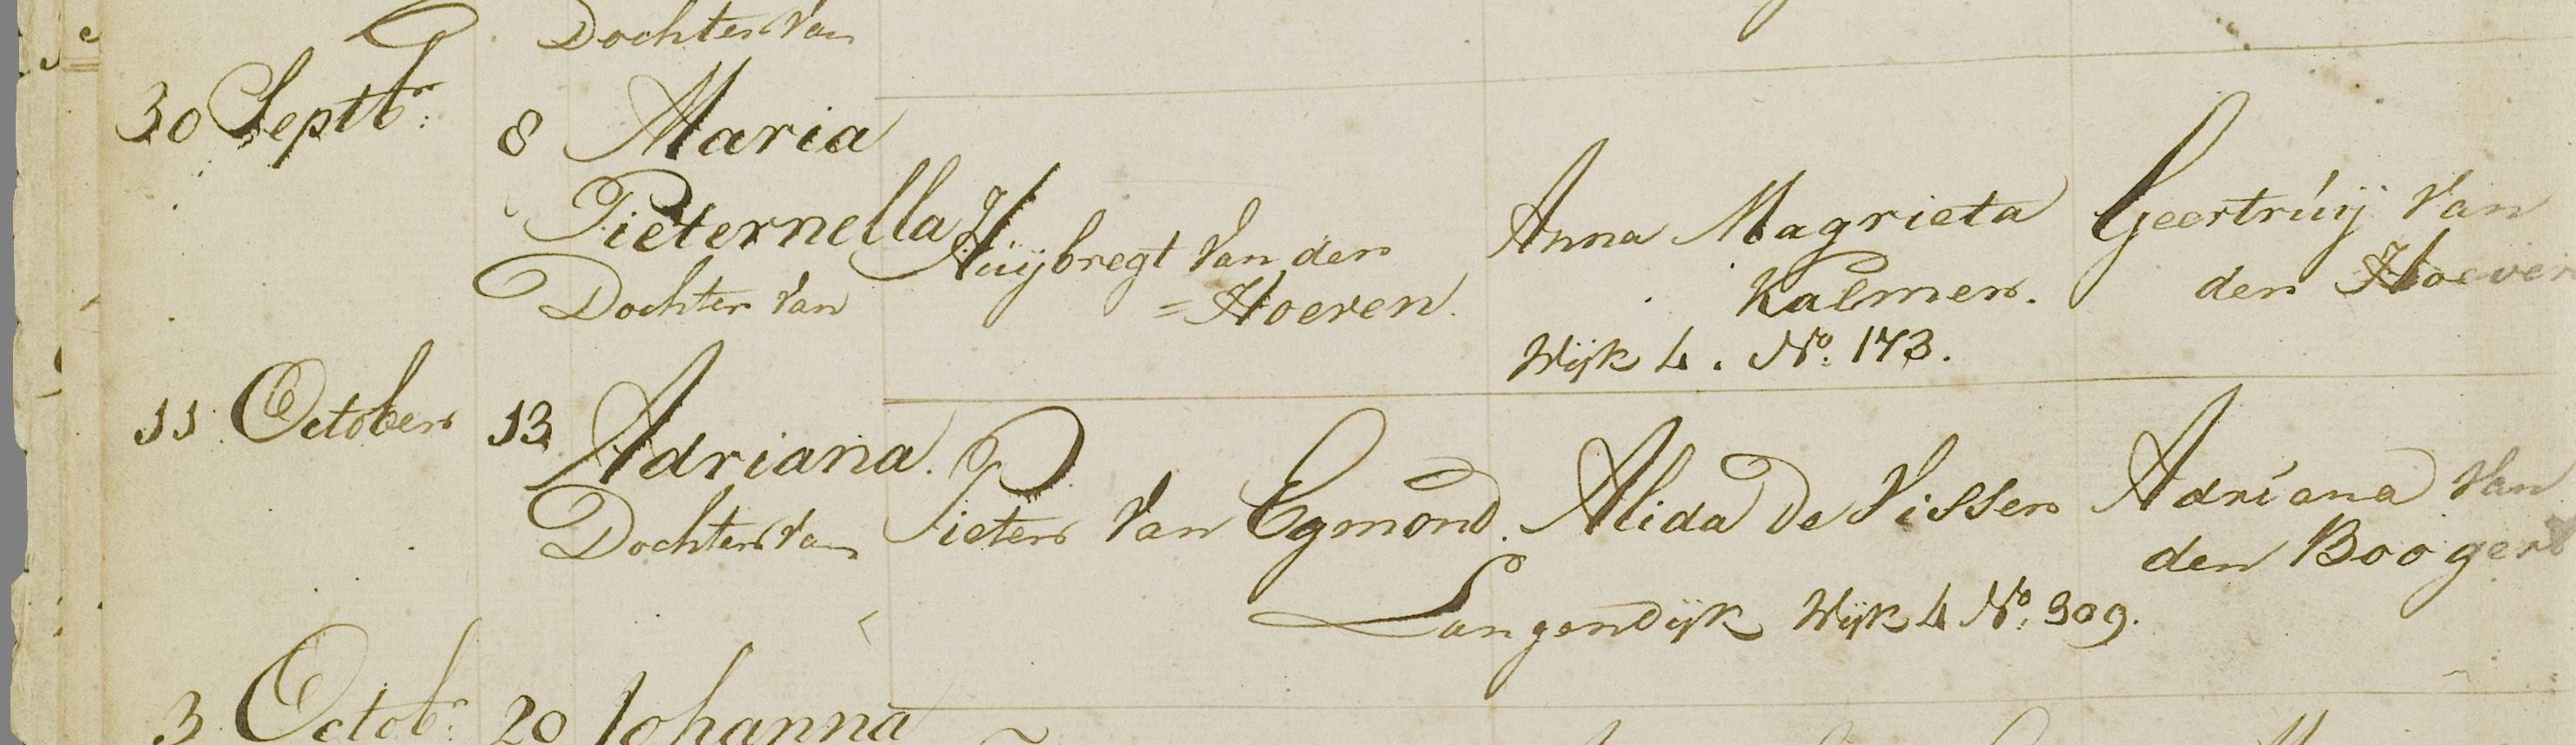 Dochter Van
30 Septbr: 8 Maria
Pieternella Huijbregt Van den Anna Magrieta Geertruij Van
Dochter Van =Hoeven. Kalmer. den Hoeven
Wijk 4. No: 173.
11 October 13 Adriana. Pieter Van Egmond. Alida De Visser Adriana Van
Dochter Van den Boogert
Langendijk Wijk 4 No: 309.
3 Octobr 20 Johanna